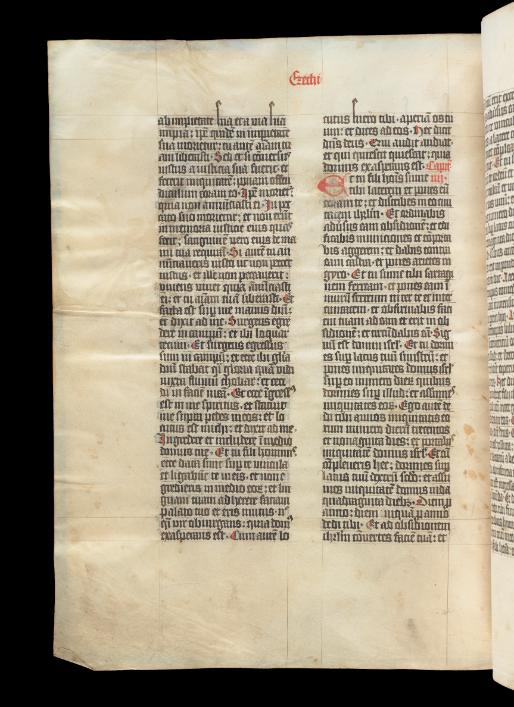 Ezechi
ab impietate sua et a via sua
impia: ip̄e quidē in iniquitate
sua morietur: tu autē aīam tuā
am liberasti. Sed et si conversus
iustus a iusticia sua fuerit: et
fecerit iniquitatē: ponam offen
diculum coram eo. Ip̄e morietʳ
quia non annūciasti ei. In pec
cato suo morietur: et non erūt
in memoria iusticie eius quas
fecit: sanguinē vero eius de ma
nu tua requirā. Si autē tu an
nūciaveris iusto ut non peccet
iustus: et ille non peccaverit:
vivens vivet quia annūciasti
ei: et tu aīam tuā liberasti. Et
facta est sup me manus dn̄i:
et dixit ad me. Surgens egre
dere in campū: et ibi loquar
tecum. Et surgens egressus
sum in campū: et ecce ibi gl̄ia
dn̄i stabat q̄si gloria quā vidi
iuxta fluviū chobar: et ceci
di in faciē meā. Et ītressꝰ
est in me spiritus: et statuit
me supra pedes meos: et lo
cutus est michi: et dixit ad me.
Ingredere et includere ī medio
domus tue. Et tu fili hominis
ecce data sunt sup te vincula
et ligabūt te in eis: et non e
gredieris in medio eoꝝ: et lin
guam tuam adherere faciam
palato tuo et eris mutus: nͨ
q̄si vir obiurgans: quia domꝰ
exasperans est. Cum autē lo
cutus fuero tibi: aperiā os tu
um: et dices ad eos. Hec dicit
dn̄s deus. Qui audit audiat:
et qui quiescit quiescat: quia
domus exasperans est. Capᵐ
Et tu fili hoīs sume iiii.
tibi laterem et pones eū
coram te: et describes in eo civi
tatem ihrl̄m. Et ordinabis
adūsus eam obsidionē: et edi
ficabis municiones et cōpor
bis aggerem: et dabis contra
eam castra: et pones arietes in
gyro. Et tu sume tibi sartagi
nem ferream: et pones eam ī
murū ferreum inter te et inter
civitatem: et obfirmabis faci
em tuam ad eam et erit in ob
sidionē: et circūdabis eā. Sig
nū est domui isrl̄. Et tu dormi
es sup latus tuū sinistrū: et
pones iniquitates domus isrl̄
sup eo numero dieꝝ quibus
dormies sup illud: et assumes
iniquitatē eoꝝ. Ego autē de
di tibi annos iniquitatis eo
rum numero dierū trecentos
et nonaginta dies: et portabis
iniquitatē domus isrl̄. Et cū
cōpleveris hec: dormies sup
latus tuū dexterū scd̄o: et assu
mes iniquitatē domus iuda
quadraginta diebꝫ. Diem p
anno: diem inquā p anno
dedi tibi. Et ad obsidionem
ihrl̄m cōvertes faciē tuā: et